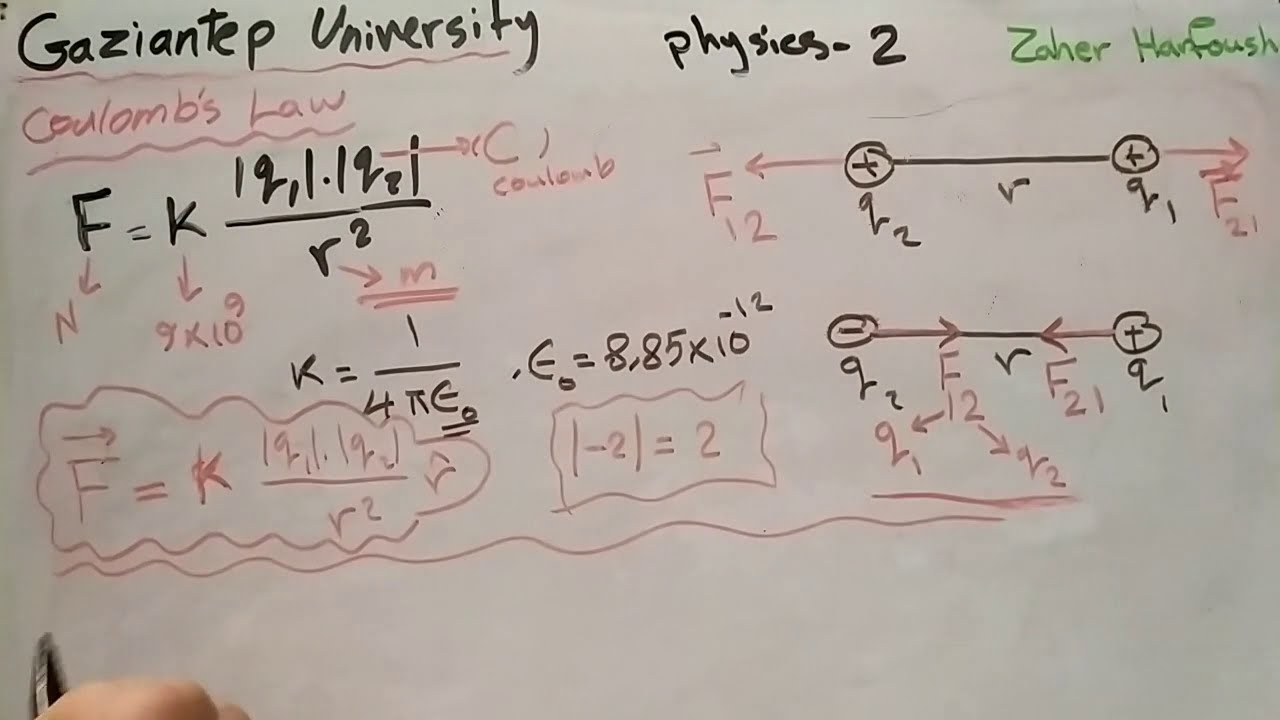 Gaziantep University physics-2 Zaher Harfoush
Coulomb's Law
F = K |q₁|.|q₂| / r² → (C) coulomb
N
9x10⁹
→ m
K = 1 / 4πϵ₀ , ϵ₀ = 8,85x10⁻¹²
F⃗ = K |q₁|.|q₂| / r² r̂
|-2| = 2
F⃗₁₂ + q₂ r + q₁ F⃗₂₁
- q₂ F₁₂ r F₂₁ + q₁
q₁ q₂